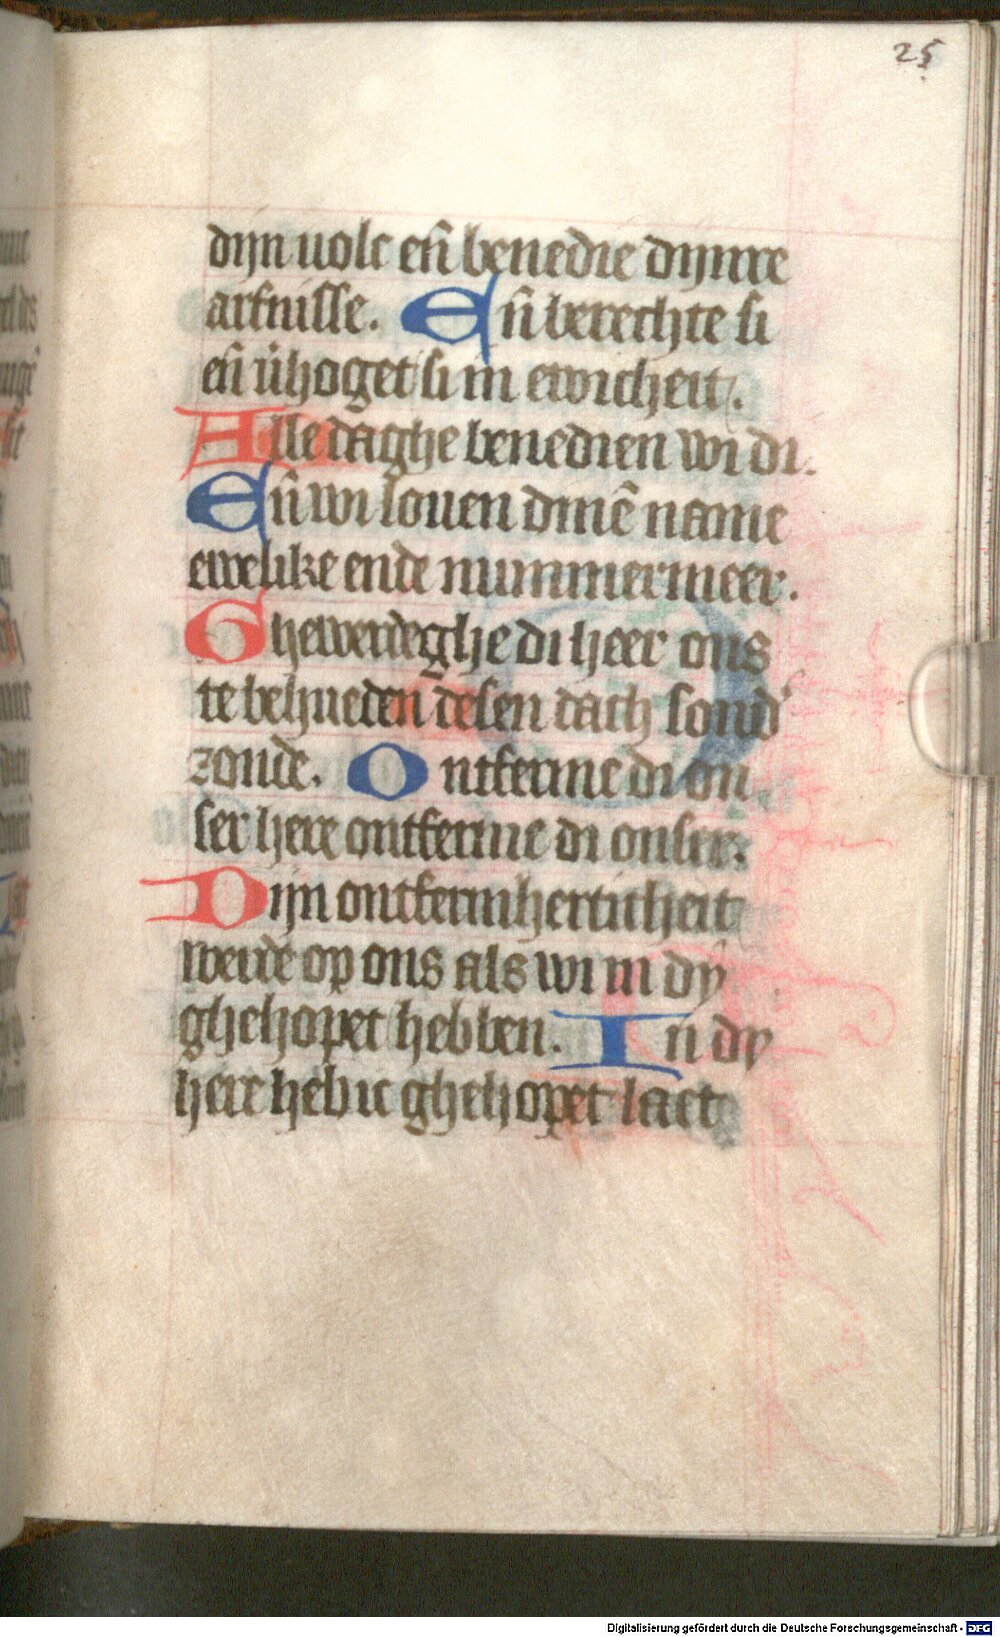 25
dijn uolc en̄ benedie dijnre
arfnisse. En̄ berechte si
en̄ v̄hoget si in ewicheit.
Alle daghe benedien wi di.
En̄ wi louen dinē name
ewelike ende nummermeer.
Ghewerdeghe di heer ons
te behueden desen dach sond᷑
zonde. Ontferme di on
ser here ontferme di onser.
Dijn ontfermherticheit
werde op ons als wi in dy
ghehopet hebben. In dy
here heb ic ghehopet laet
Digitalisierung gefördert durch die Deutsche Forschungsgemeinschaft - DFG